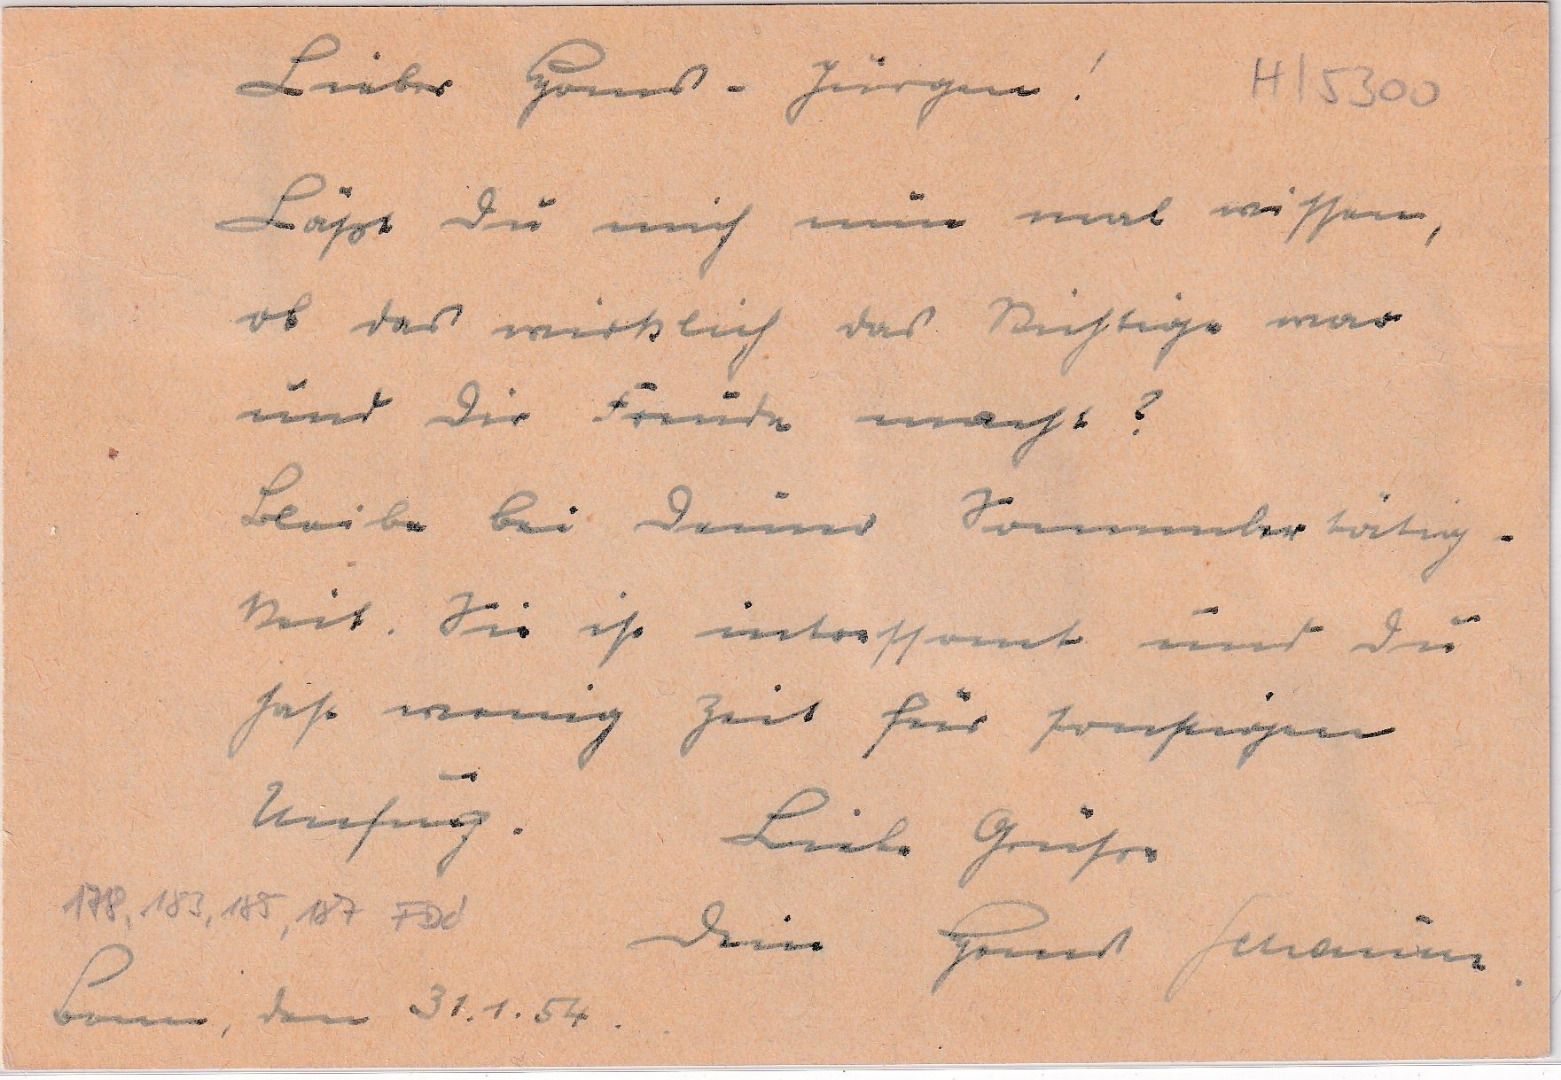 Lieber Hans-Jürgen! H/5300
Läßt Du mich nun mal wissen,
ob das wirklich das Richtige war
und Dir Freude macht?
Bleibe bei Deiner Sammlertätig-
keit. Sie ist interessant und Du
hast wenig Zeit für sonstigen
Unfug. Liebe Grüße
178, 183, 185, 187 FDd
Dein Hans
Bonn, den 31.1.54.